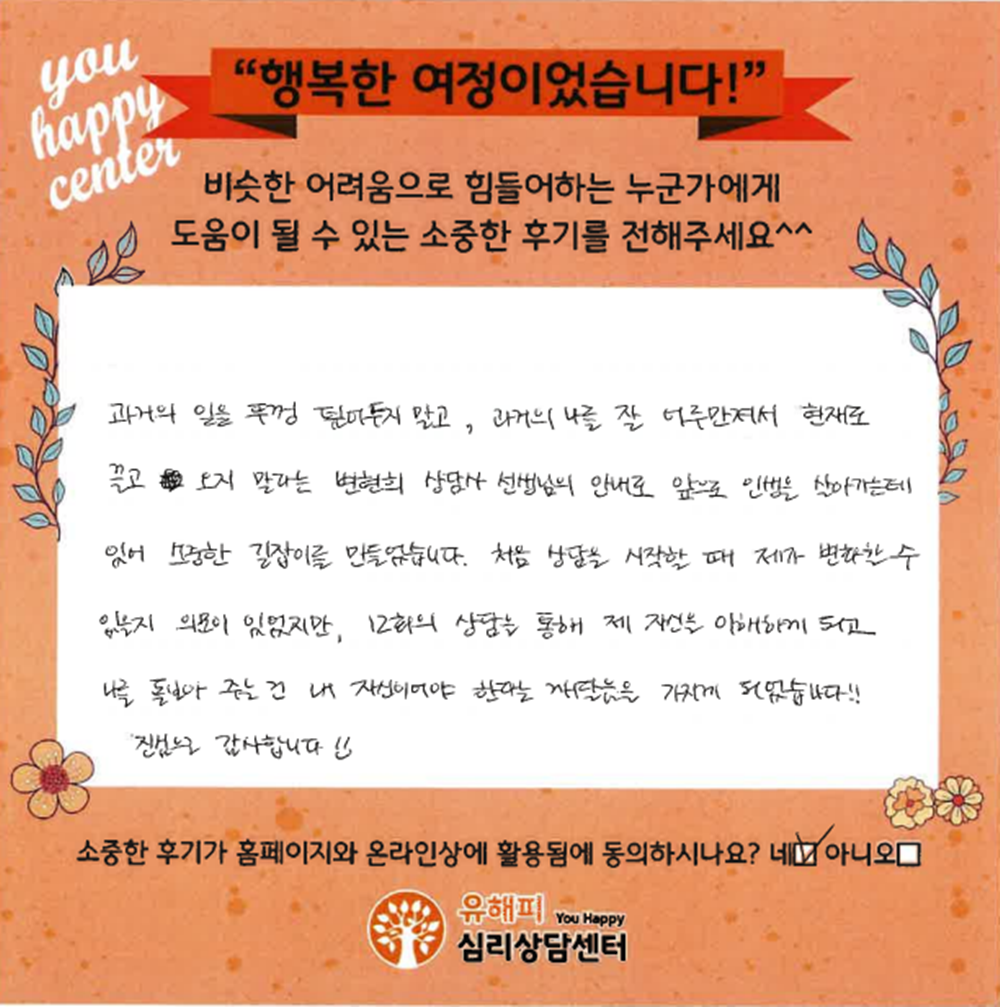 you
happy
center
“행복한 여정이었습니다!”
비슷한 어려움으로 힘들어하는 누군가에게
도움이 될 수 있는 소중한 후기를 전해주세요^^
과거의 일을 뚜껑 덮어두지 말고, 과거의 나를 잘 어루만져서 현재로
끌고 오지 말라는 변현희 상담사 선생님의 안내로 앞으로 인생을 살아가는데
있어 소중한 길잡이를 만들었습니다. 처음 상담을 시작할 때 제가 변화할 수
있을지 의문이 있었지만, 12회의 상담을 통해 제 자신을 이해하게 되고
나를 돌보아 주는 건 내 자신이어야 한다는 깨달음을 가지게 되었습니다!!
진심으로 감사합니다!!
소중한 후기가 홈페이지와 온라인상에 활용됨에 동의하시나요? 네☑ 아니오☐
유해피 You Happy
심리상담센터